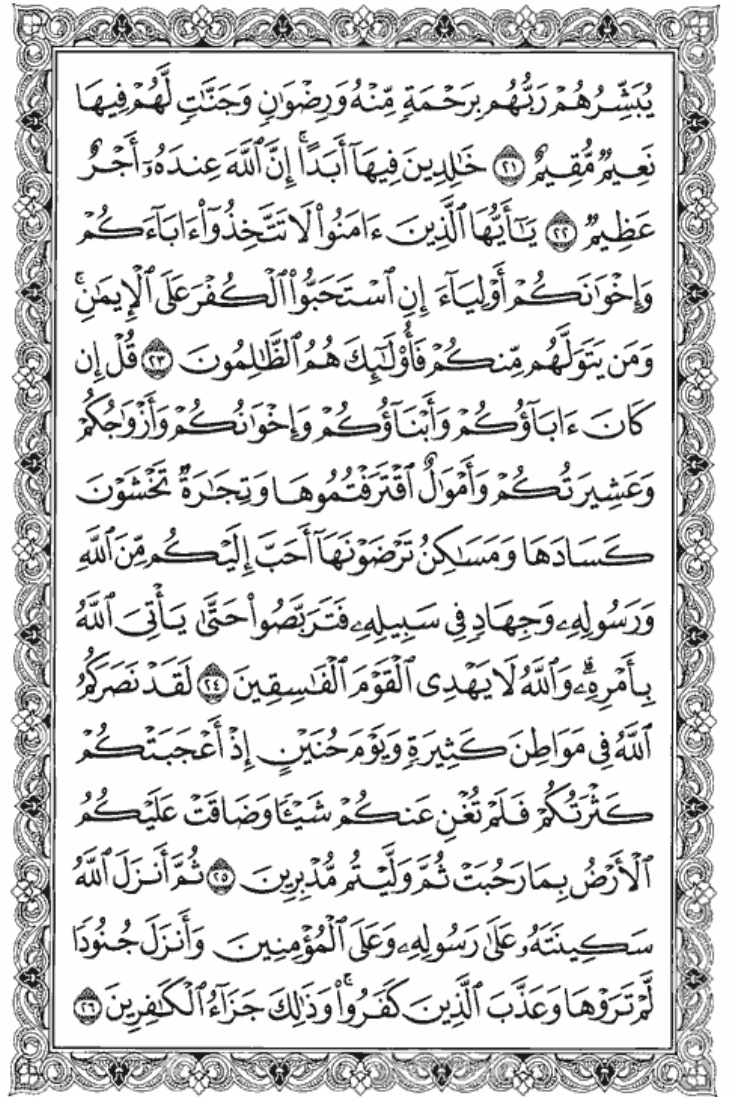 يُبَشِّرُهُمْ رَبُّهُم بِرَحْمَةٍ مِّنْهُ وَرِضْوَٰنٍ وَجَنَّٰتٍ لَّهُمْ فِيهَا
نَعِيمٌ مُّقِيمٌ ٢١ خَٰلِدِينَ فِيهَآ أَبَدًا ۚ إِنَّ ٱللَّهَ عِندَهُۥٓ أَجْرٌ
عَظِيمٌ ٢٢ يَٰٓأَيُّهَا ٱلَّذِينَ ءَامَنُوا۟ لَا تَتَّخِذُوٓا۟ ءَابَآءَكُمْ
وَإِخْوَٰنَكُمْ أَوْلِيَآءَ إِنِ ٱسْتَحَبُّوا۟ ٱلْكُفْرَ عَلَى ٱلْإِيمَٰنِ ۚ
وَمَن يَتَوَلَّهُم مِّنكُمْ فَأُو۟لَٰٓئِكَ هُمُ ٱلظَّٰلِمُونَ ٢٣ قُلْ إِن
كَانَ ءَابَآؤُكُمْ وَأَبْنَآؤُكُمْ وَإِخْوَٰنُكُمْ وَأَزْوَٰجُكُمْ
وَعَشِيرَتُكُمْ وَأَمْوَٰلٌ ٱقْتَرَفْتُمُوهَا وَتِجَٰرَةٌ تَخْشَوْنَ
كَسَادَهَا وَمَسَٰكِنُ تَرْضَوْنَهَآ أَحَبَّ إِلَيْكُم مِّنَ ٱللَّهِ
وَرَسُولِهِۦ وَجِهَادٍ فِى سَبِيلِهِۦ فَتَرَبَّصُوا۟ حَتَّىٰ يَأْتِىَ ٱللَّهُ
بِأَمْرِهِۦ ۗ وَٱللَّهُ لَا يَهْدِى ٱلْقَوْمَ ٱلْفَٰسِقِينَ ٢٤ لَقَدْ نَصَرَكُمُ
ٱللَّهُ فِى مَوَاطِنَ كَثِيرَةٍ وَيَوْمَ حُنَيْنٍ إِذْ أَعْجَبَتْكُمْ
كَثْرَتُكُمْ فَلَمْ تُغْنِ عَنكُمْ شَيْـًٔا وَضَاقَتْ عَلَيْكُمُ
ٱلْأَرْضُ بِمَا رَحُبَتْ ثُمَّ وَلَّيْتُم مُّدْبِرِينَ ٢٥ ثُمَّ أَنزَلَ ٱللَّهُ
سَكِينَتَهُۥ عَلَىٰ رَسُولِهِۦ وَعَلَى ٱلْمُؤْمِنِينَ وَأَنزَلَ جُنُودًا
لَّمْ تَرَوْهَا وَعَذَّبَ ٱلَّذِينَ كَفَرُوا۟ ۚ وَذَٰلِكَ جَزَآءُ ٱلْكَٰفِرِينَ ٢٦